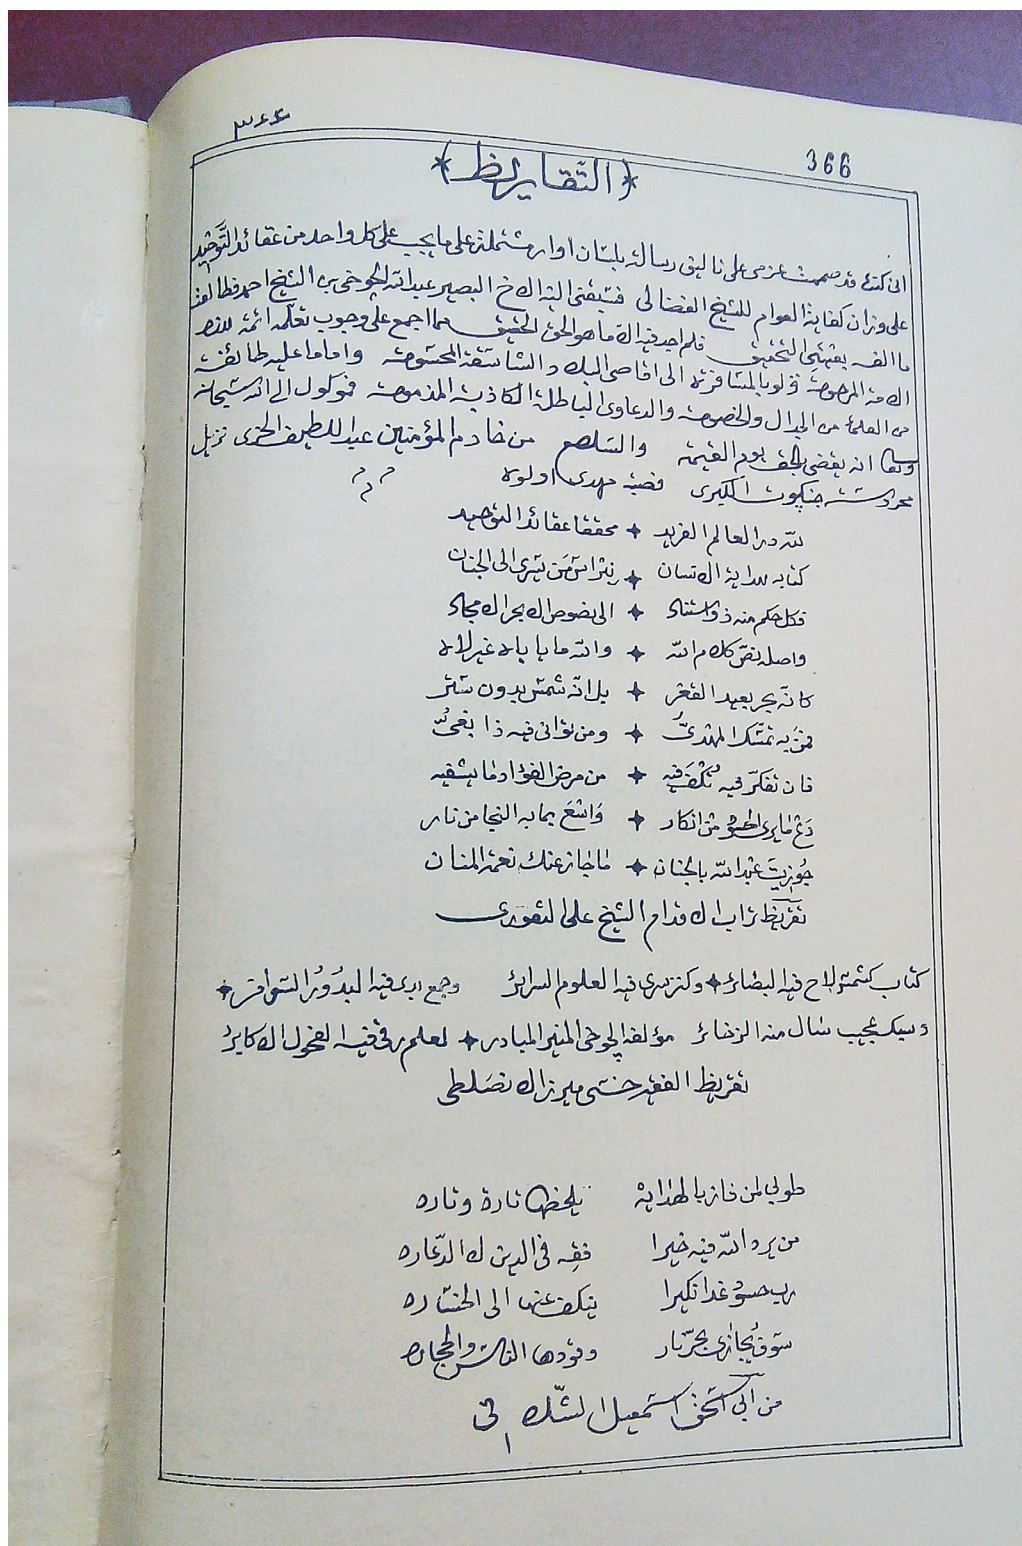 ٣٦٦
366
﴿التقاريظ﴾
انى كنت قد صممت عزمى على تاليف رسالة بلسان اوار مشتملة على ما يجب على كل واحد من عقائد التوحيد
على وزان كفاية العوام للشيخ الفضالى فسبقنى اليه الاخ البصير عبد الله الچوخى بن الشيخ احمد فطالعت
ما الفه بعينى التحقيق فلم اجد فيه الا ما هو الحق الحقيق مما اجمع على وجوب تعلمه ائمة
الامة المرحومة ولو بالمسافرة الى اقاصى البلاد الشاسعة واما ما عليه طائفة
من العلماء من الجدال والخصومة والدعاوى الباطلة الكاذبة المذمومة فموكول الى الله سبحانه
وتعالى انه يقضى بالحق يوم القيمة والسلام من خادم المؤمنين عبد اللطيف الحزى نزيل
محروسة الكبرى قصبة
لله در العالم الفريد محققا عقائد التوحيد
كتابه هداية الانسان نبراس من يسرى الى الجنان
فكل حكم منه ذو استناد الى نصوص
واصله نص كلام الله والله ما ياباه غير لاه
كانه بحر بعيد القعر بل انه شمس بدون ستر
من به تمسك المهدى ومن توانى فيه ذا بغى
فان تفكر فيه تكف فيه من مرض الفؤاد ما يشفيه
دع ما يرى من انكار واسع بما به النجا من نار
جوزيت عبد الله بالجنان ما جاز عنك نعمة المنان
تقريظ تراب الاقدام الشيخ على
كتاب كشمس لاح فيه البصائر وكنز ترى فيه العلوم السرائر وجمع ابدى فيه البدور السوافر
وسبك عجيب سال منه الزخائر مؤلفه الچوخى المنير المبادر لعلم رقى فيه الفحول الاكابر
تقريظ الفقير
طوبى لمن فاز بالهداية يلحظها تارة وتاره
من يرد الله فيه خيرا فقه فى الدين لا الدعاره
رب حسود غدا نكيرا ينكف عنها الى الخساره
سوف يجازى بحر نار وقودها الناس والحجاره
من ابى اسحق اسمعيل